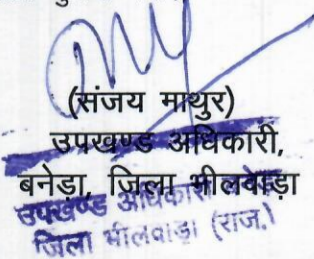 (संजय माथुर)
उपखण्ड अधिकारी,
बनेड़ा, जिला भीलवाड़ा
उपखण्ड अधिकारी
जिला भीलवाड़ा (राज.)